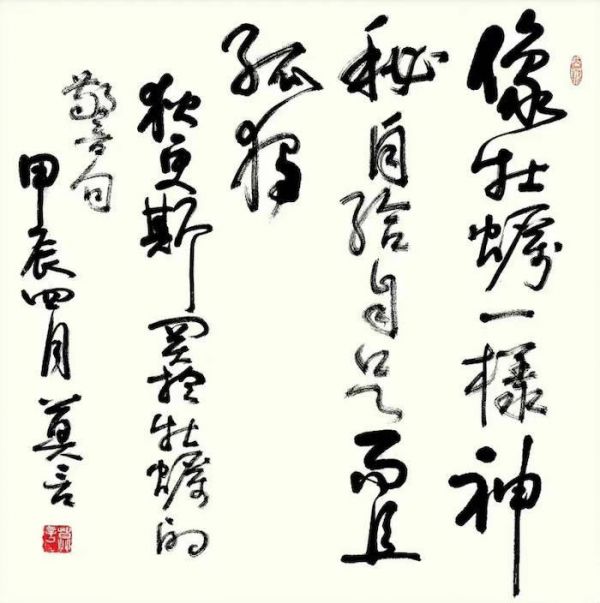 像牡蠣一樣神
秘自給自足而且
孤獨
狄更斯關於牡蠣的
警言句
甲辰四月莫言